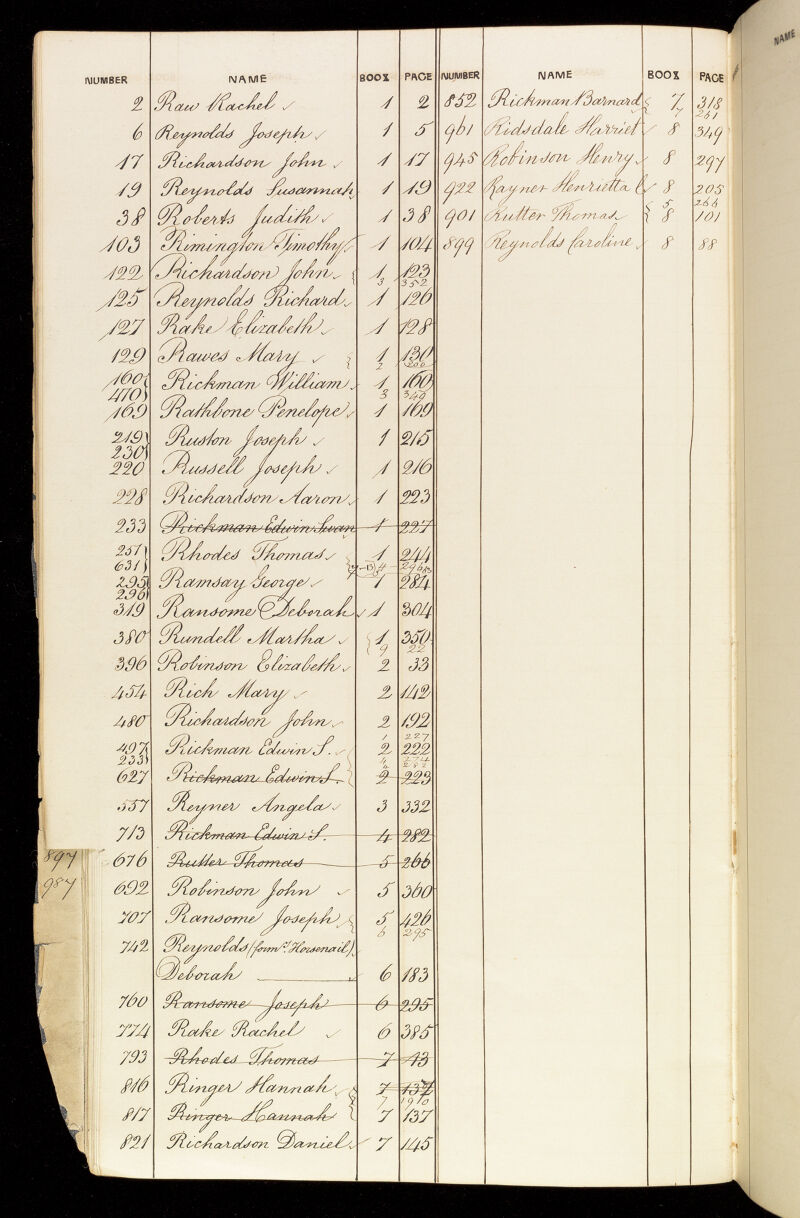 NUMBER NAME BOOK PAGE
2 Raw Rachel 1 2
6 Reynolds Joseph 1 5
17 Richardson John 1 17
19 Reynolds Susannah 1 19
38 Roberts Judith 1 38
103 Rimington Timothy 1 104
122 Richardson John 1 123
3 352
125 Reynolds Richard 1 126
127 Rake Elizabeth 1 128
129 Rawes Mary 1 130
2 200
160 Rickman William 1 160
470 3 349
169 Rathbone Penelope 1 169
219 Ruston Joseph 1 215
230
220 Russell Joseph 1 216
228 Richardson Aaron 1 223
233 Rickman Edwin Swan 1 227
257 Rhodes Thomas 1 244
631 4 296
295 Ramsay George 1 284
296
319 Ransome Deborah 1 304
380 Rundell Martha 1 350
9 22
396 Robinson Elizabeth 2 33
454 Rich Mary 2 142
480 Richardson John 2 192
1 227
497 Rickman Edwin S. 2 222
233 4
627 Rickman Edwin S. 2 223
557 Reyner Angela 3 332
713 Rickman Edwin S. 4 282
897
676 Rutter Thomas 5 266
987
692 Robinson John 5 360
707 Ransome Joseph 5 426
6 295
742 Reynolds (form.y Horsenail)
Deborah 6 183
760 Ransome Joseph 6 295
774 Rake Rachel 6 385
793 Rhodes Thomas 7 43
816 Ringer Hannah 7 137
7
817 Ringer Hannah 7 137
821 Richardson Daniel 7 145
NUMBER NAME BOOK PAGE
852 Rickman Barnard 7 318
7 261
961 Ridsdale Harriet 8 349
945 Robinson Henry 8 297
922 Rayner Henrietta C 8 205
5 266
901 Rutter Thomas 8 101
899 Reynolds Caroline 8 88
NAME